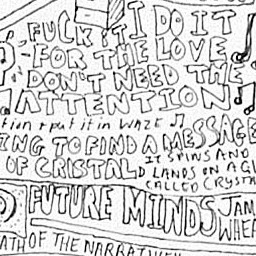 FUCK IT I DO IT
FOR THE LOVE
DON'T NEED THE
ATTENTION
tion & put it in WAZE
ING TO FIND A MESSAGE
IT SPINS AND
OF CRISTAL
D LANDS ON A GU
CALLED CRYSTA
FUTURE MINDS
JAM
WHER
ATH OF THE NARRATIVE